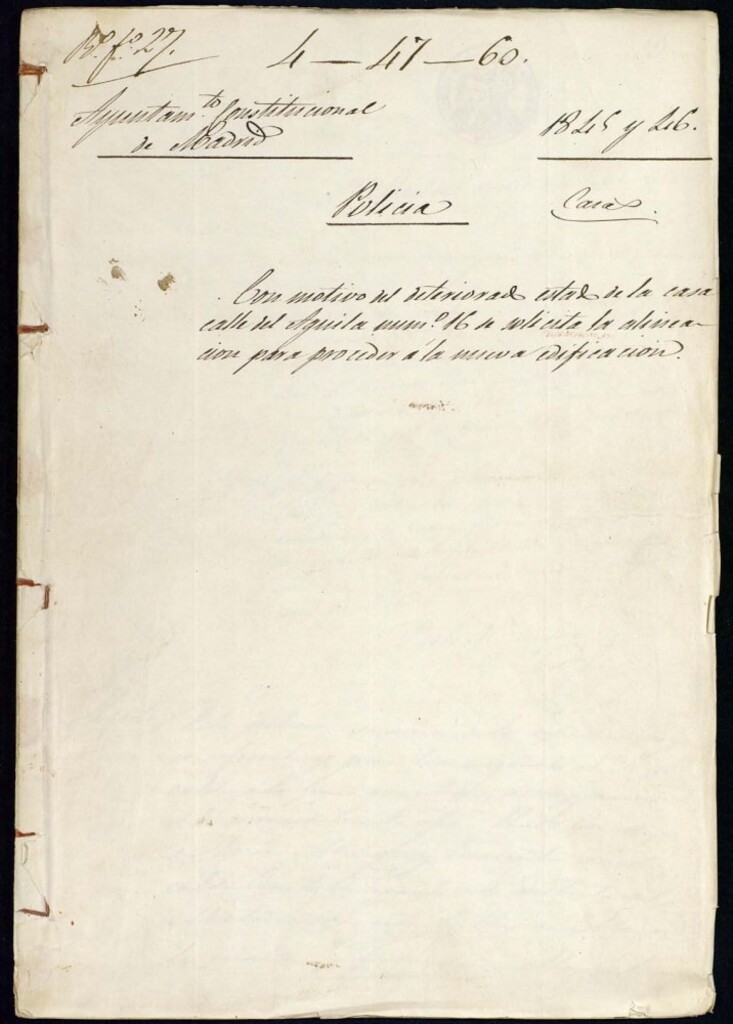 Rº fº 27.
4 — 47 — 60.
Ayuntam.to Constitucional
de Madrid
1845 y 46.
Policia
Casas.
Con motivo del deteriorado estado de la casa
calle del Aguila num.º 16 se solicita la alinea-
cion para proceder á la nueva edificacion.